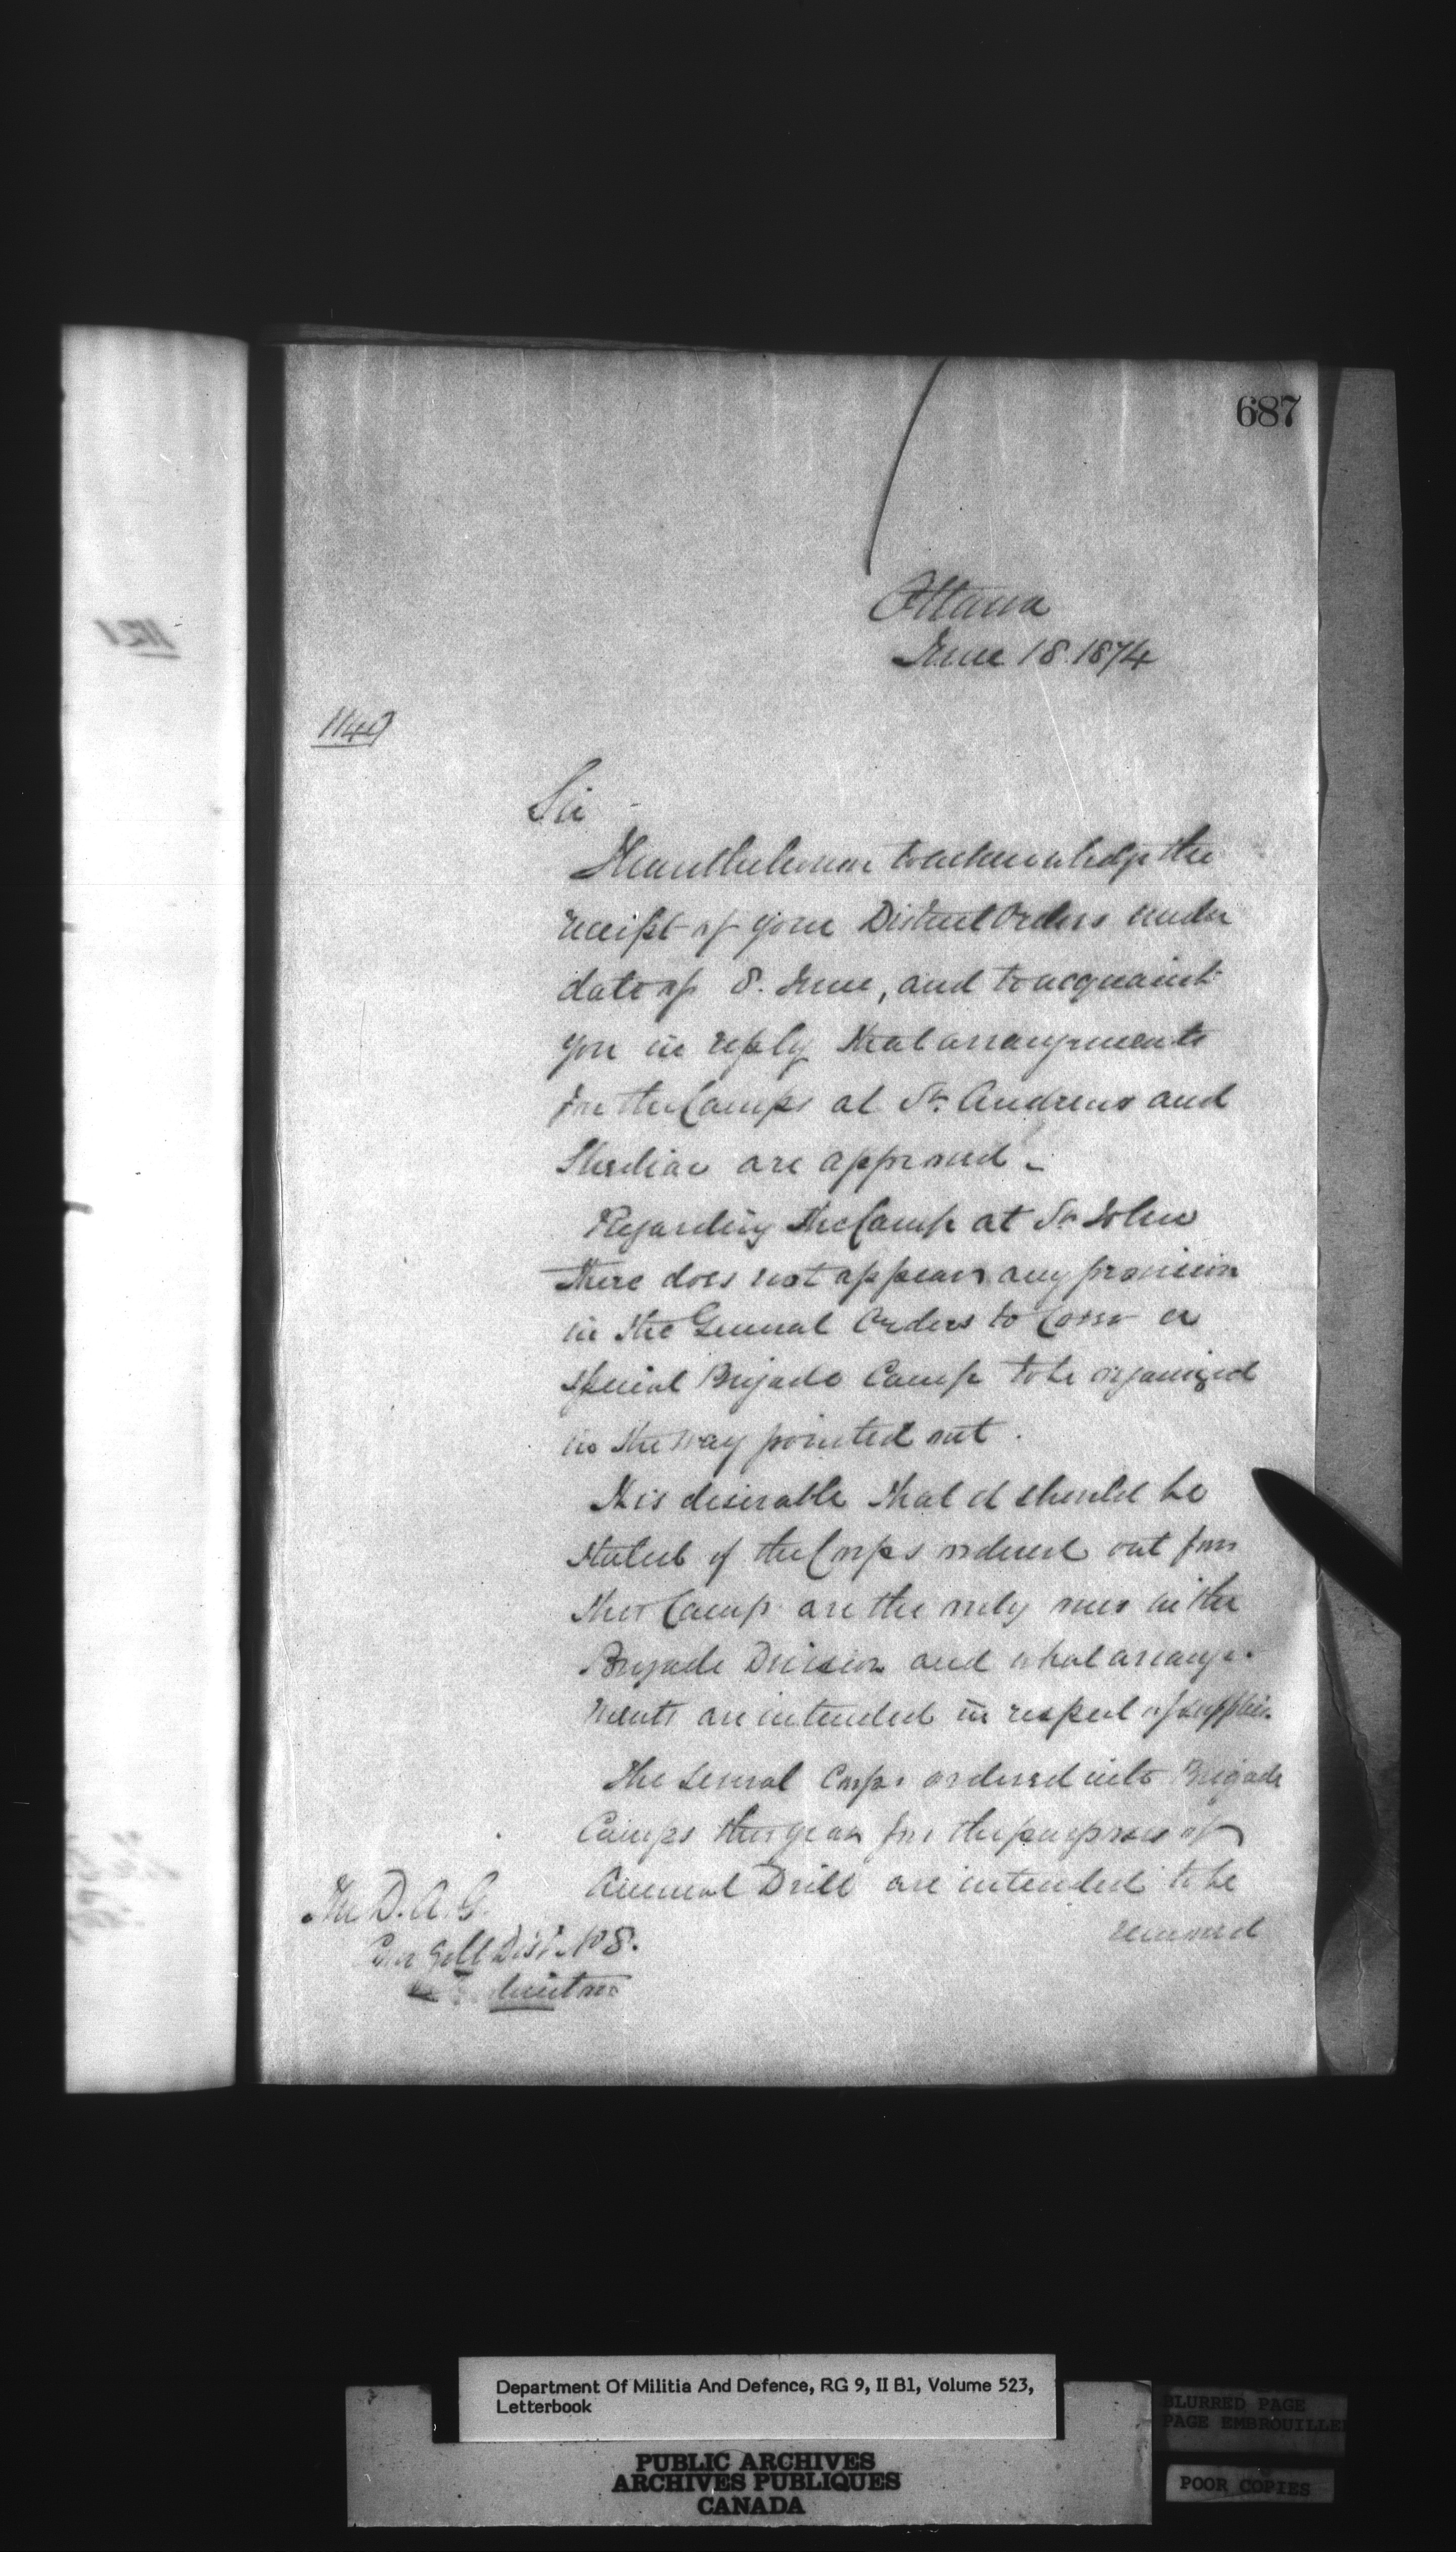 687
Ottawa
June 18. 1874
1149
Sir
I have the honour to acknowledge the
receipt of your District Orders under
date of 8. June, and to acquaint
you in reply that arrangements
for the Camps at St. Andrews and
Shediac are approved -
Regarding the Camp at St John
there does not appear any provision
in the General Orders to cover a
special Brigade Camp to be organized
in the way pointed out.
It is desirable that it should be
stated if the Corps ordered out for
this Camp are the only ones in the
Brigade Division and what arrange-
ments are intended in respect of supplies.
The several Corps ordered into Brigade
Camps this year for the purposes of
Annual Drill are intended to be
The D. A. G.
Dist. No 8.
Department Of Militia And Defence, RG 9, II B1, Volume 523,
Letterbook
PUBLIC ARCHIVES
ARCHIVES PUBLIQUES
CANADA
BLURRED PAGE
PAGE EMBROUILLE
POOR COPIES